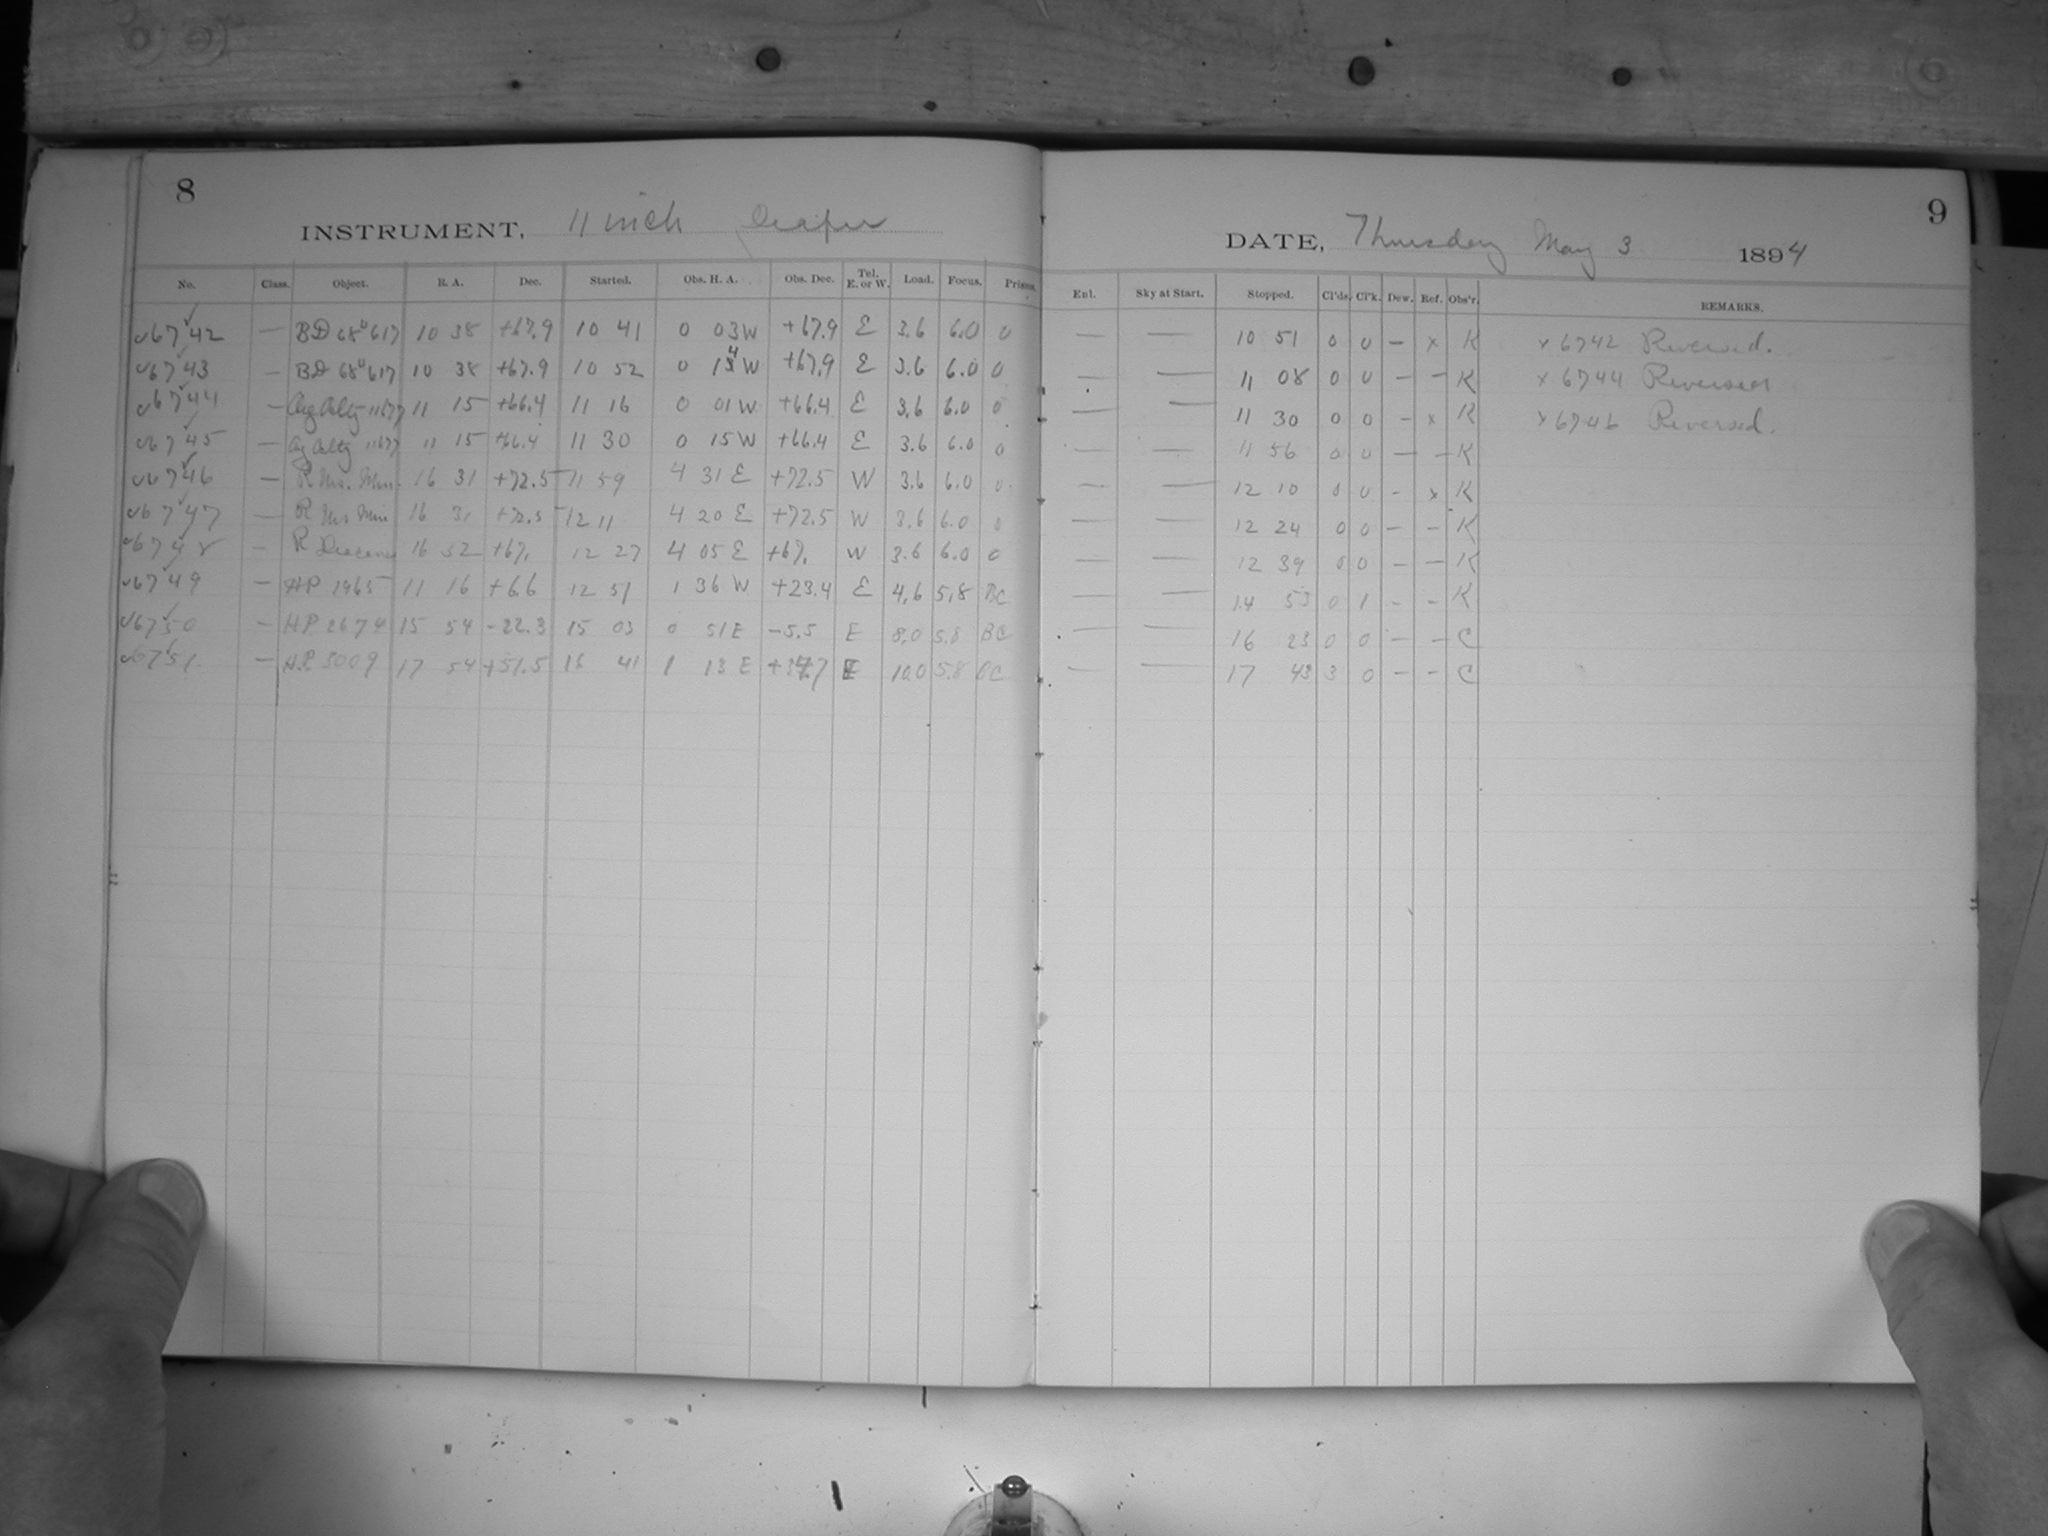 8
INSTRUMENT, 11 inch Draper
No. Class. Object. R. A. Dec. Started. Obs. H. A. Obs. Dec. Tel. E. or W. Load. Focus. Prisms.
6742 — BD 68°617 10 38 +67.9 10 41 0 03 W +67.9 E 3.6 6.0 0
6743 — BD 68°617 10 38 +67.9 10 52 0 14 W +67.9 E 3.6 6.0 0
6744 — Arg Oeltz 11677 11 15 +66.4 11 16 0 01 W +66.4 E 3.6 6.0 0
6745 — Arg Oeltz 11677 11 15 +66.4 11 30 0 15 W +66.4 E 3.6 6.0 0
6746 — R Urs. Min. 16 31 +72.5 11 59 4 31 E +72.5 W 3.6 6.0 0
6747 — R Urs Min 16 31 +72.5 12 11 4 20 E +72.5 W 3.6 6.0 0
6748 — R Draconis 16 32 +67. 12 27 4 05 E +67. W 3.6 6.0 0
6749 — HP 1965 11 16 +6.6 12 51 1 36 W +23.4 E 4.6 5.8 BC
6750 — HP 2674 15 54 -22.3 15 03 0 51 E -5.5 E 8.0 5.8 BC
6751 — H.P. 3009 17 54 +51.5 16 41 1 13 E E 10.0 5.8 BC
9
DATE, Thursday May 3 1894
Enl. Sky at Start. Stopped. Cl'ds. Cl'k. Dew. Ref. Obs'r. REMARKS.
— — 10 51 0 0 – x K x 6742 Reversed.
— — 11 08 0 0 – – K x 6744 Reversed
— — 11 30 0 0 – x K x 6746 Reversed.
— — 11 56 0 0 – – K
— — 12 10 0 0 – x K
— — 12 24 0 0 – – K
— — 12 39 0 0 – – K
— — 14 53 0 1 – – K
— — 16 23 0 0 – – C
— — 17 43 3 0 – – C